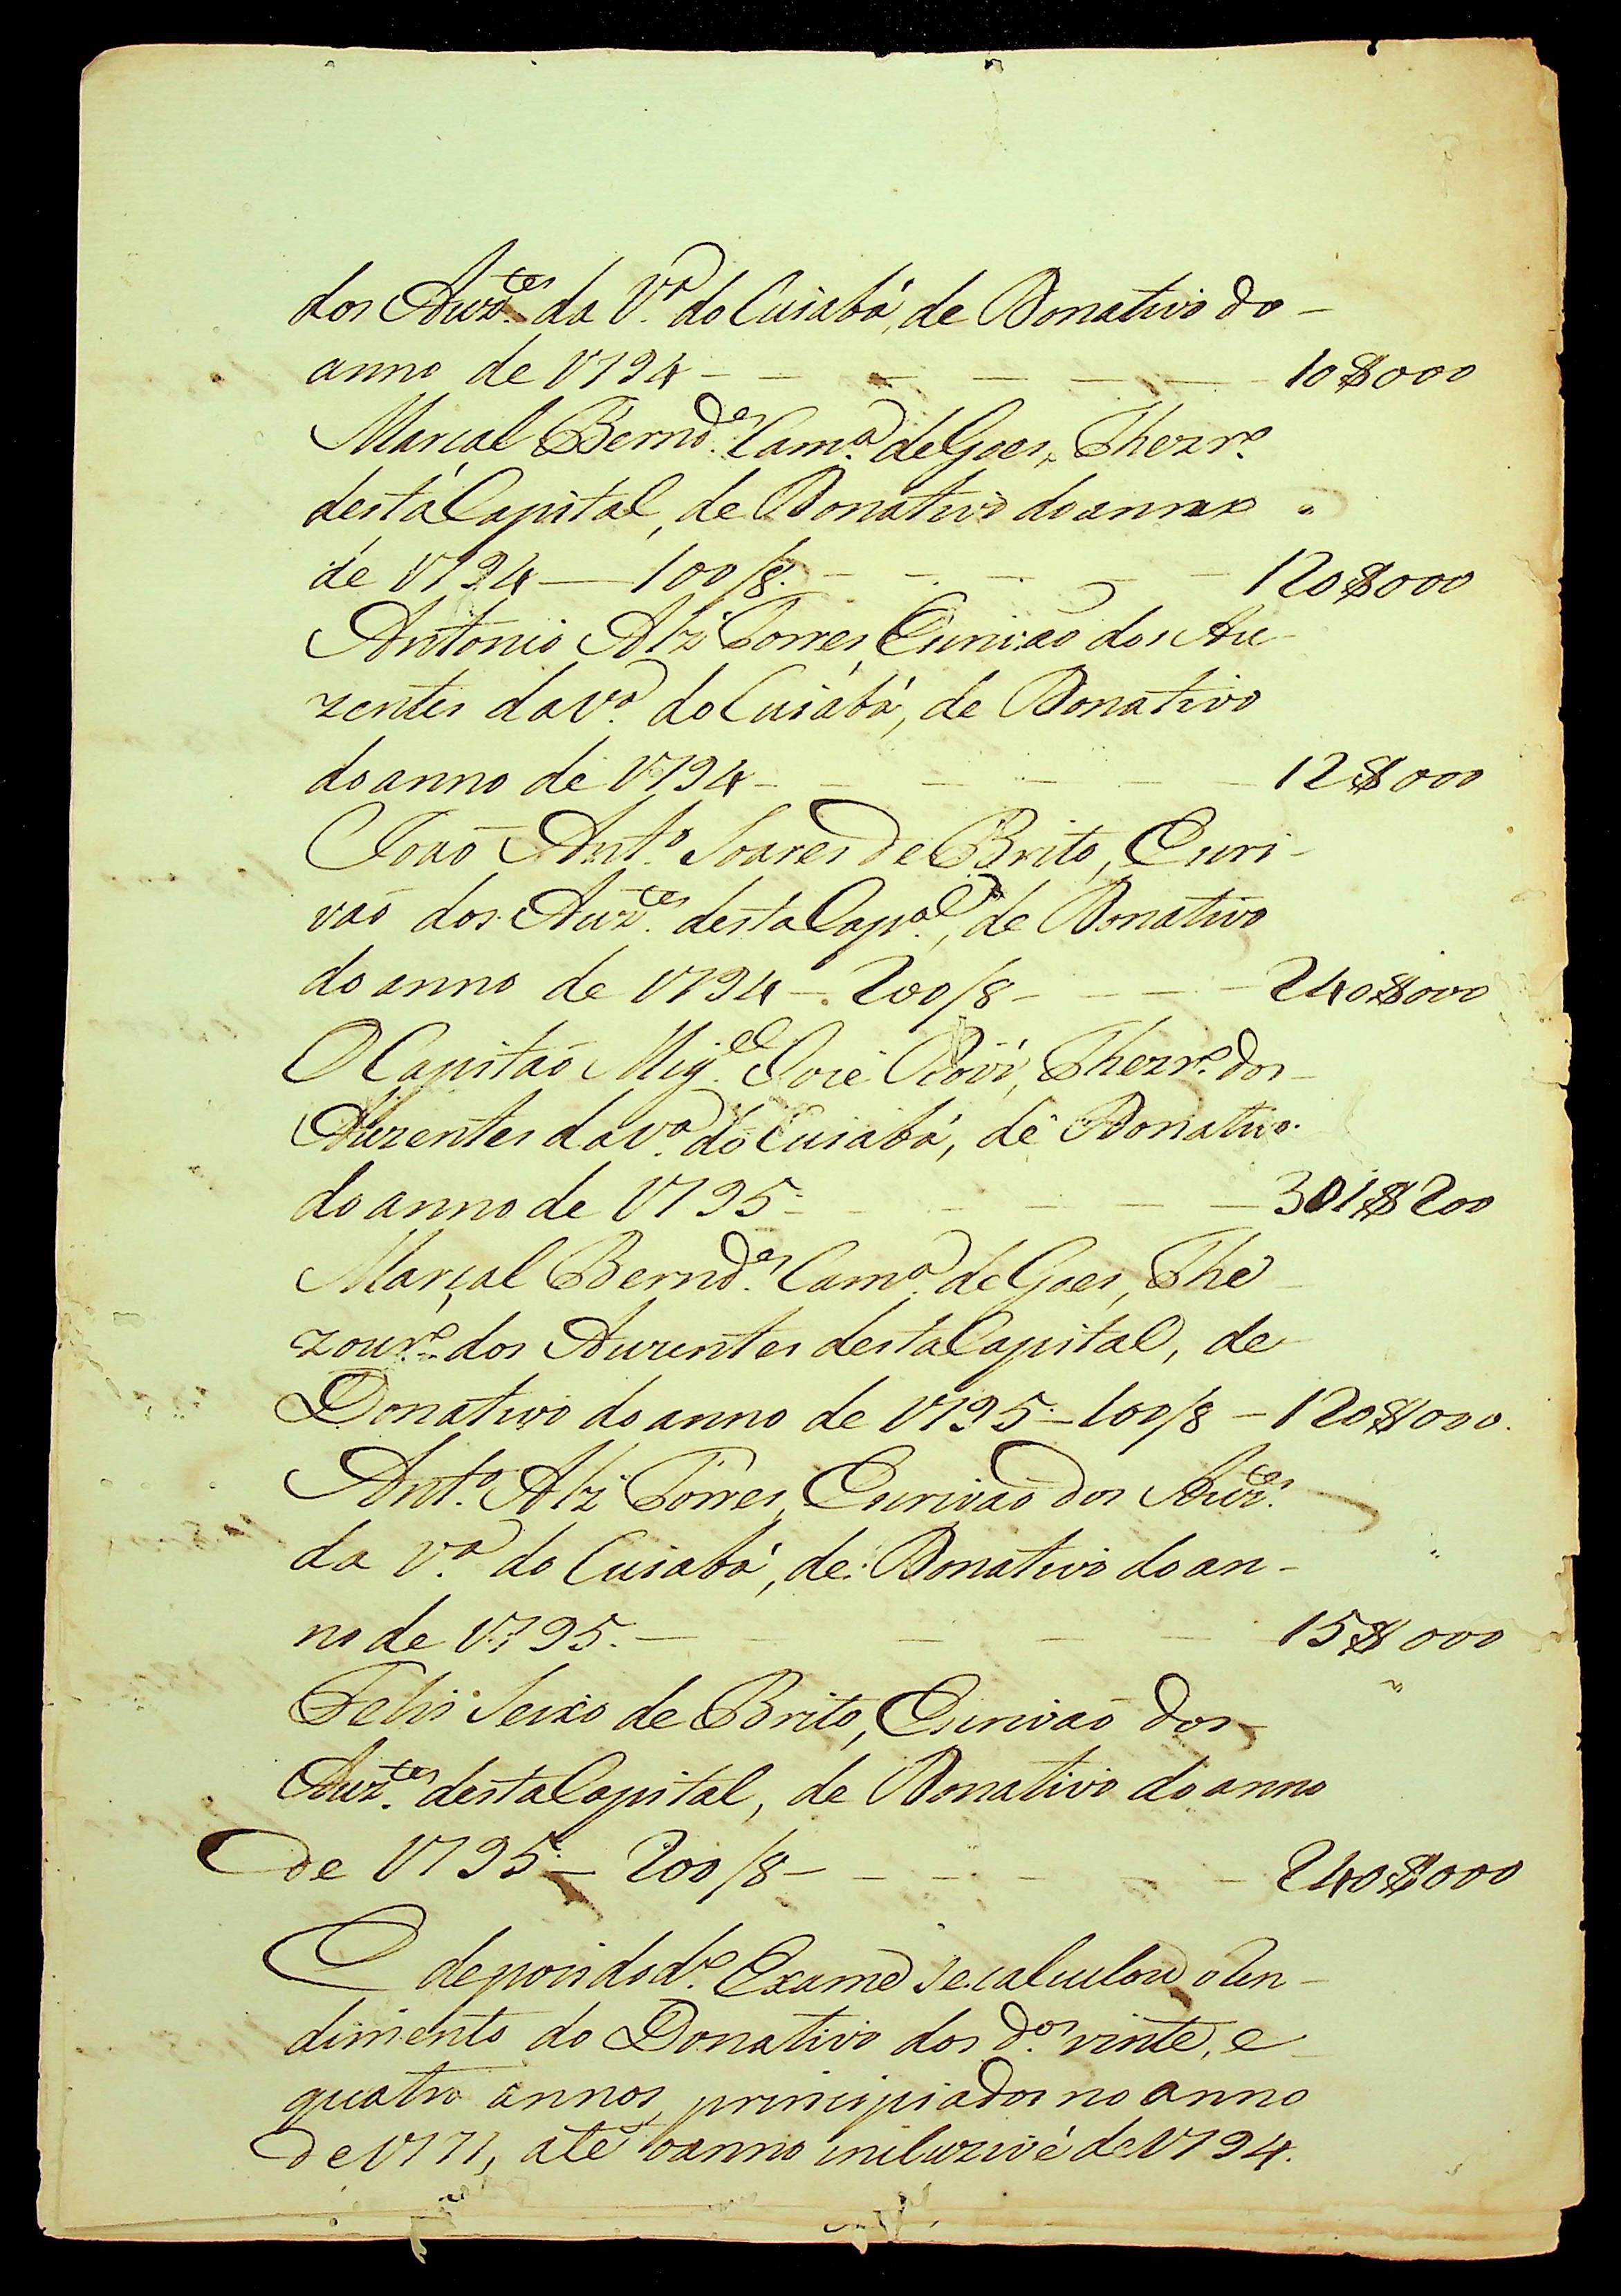 dos Auz.tes da V.a do Cuiabá, de Donativo do –
anno de 1794 – – – – – – 10$000
Marçal Bernd.es Cam.a de Goes, Thezr.o
desta Capital, de Donativo do anno
de 1794 — 100/8.as – – – – 120$000
Antonio Alz' Torres, Escrivaõ dos Au-
zentes da V.a do Cuiabá, de Donativo
do anno de 1794 – – – – – 12$000
Joaõ Ant.o Soares de Brito, Escri-
vaõ dos Auz.tes desta Cap.al, de Donativo
do anno de 1794 – 200/8 – – – – 240$000
O Capitaõ Mig.el José, Thezr.o dos –
Auzentes da V.a do Cuiabá, de Donativo
do anno de 1795 – – – – – 301$200
Marçal Bernd.es Cam.a de Goes, The-
zour.o dos Auzentes desta Capital, de
Donativo do anno de 1795 – 100/8 – 120$000.
Ant.o Alz' Torres, Escrivaõ dos Auz.tes
da V.a do Cuiabá, de Donativo do an-
no de 1795. – – – – – 15$000
Felis Seixo de Brito, Escrivaõ dos –
Auz.tes desta Capital, de Donativo do anno
de 1795 – 200/8 – – – – – 240$000
E depois do d.o Exame se calculou o Ren-
dimento do Donativo dos d.os vinte, e
quatro annos, principiados no anno
de 1771, até o anno incluzivé de 1794.